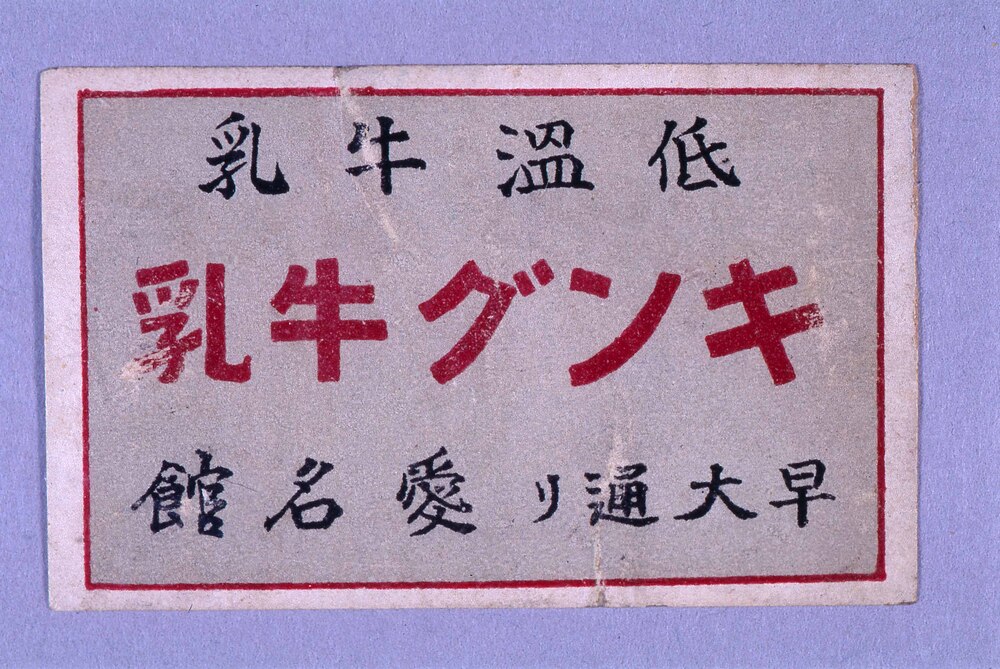 低溫牛乳
キング牛乳
早大通リ愛名館